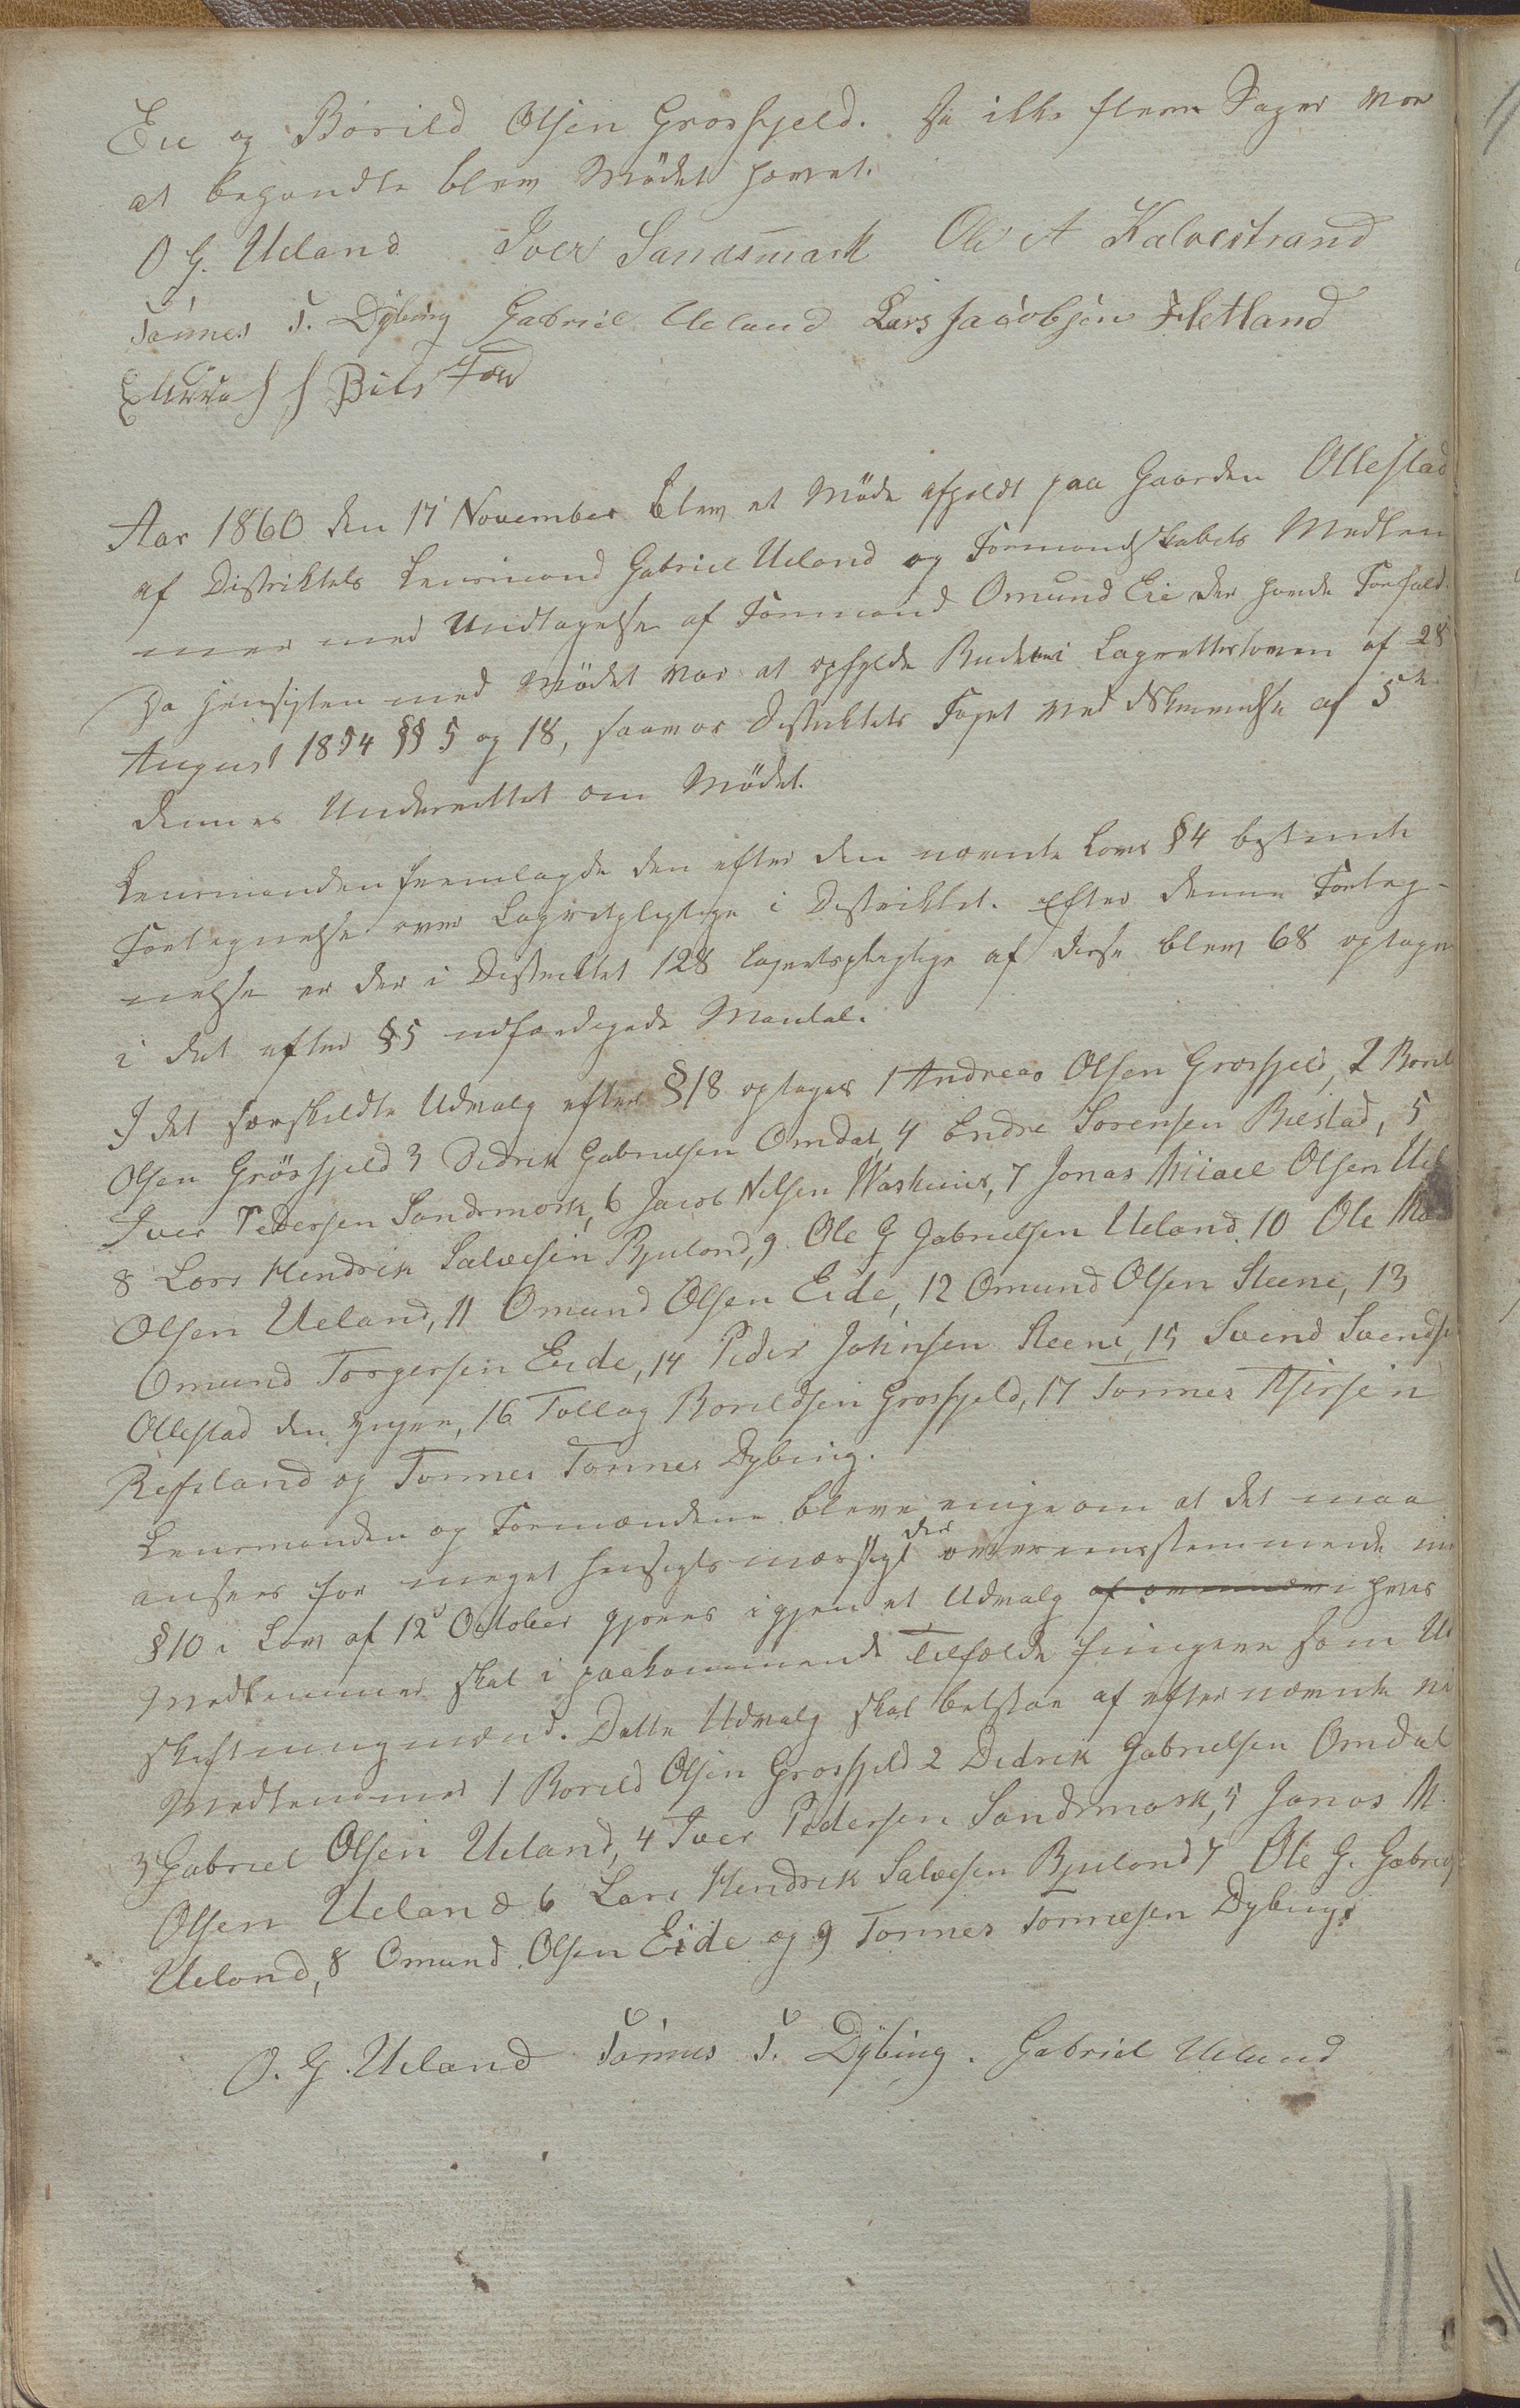 Eie og Børild Olsen Grøsfjeld. Da ikke flere Sager var
at behandle blev Mødet hævet.
O G. Ueland Iver Sandsmark Ole A Kalvestrand
Tønnes T. Dybing Gabriel Ueland Lars Jacobsen Hetland
Bilstad
Aar 1860 den 17 November blev et Møde afholdt paa Gaarden Ollestad
af Distriktets Lensmand Gabriel Ueland og Formandskabets Medlem
mer med Undtagelse af Formand Omund Eie der havde Forfald.
Da Hensigten med Mødet var at opfylde Budet i Lagrettesloven af 28
August 1854 §§ 5 og 18, saa var Distriktets Foged ved Skrivelse af 5te
dennes Underrettet om Mødet.
Lensmanden fremlagde den efter den nævnte Lovs § 4 bestemte
Fortegnelse over Lagretpligtige i Distriktet. Efter denne Forteg-
nelse er der i Distriktet 128 lagretspligtige af disse blev 68 optagne
i det efter § 5 udfærdigede Mantal.
I det særskildte Udvalg efter § 18 optages 1 Andreas Olsen Grøsfjeld, 2 Boril
Olsen Grøsfjeld 3 Didrik Gabrielsen Omdal, 4 Endre Sørensen Bilstad, 5
Iver Pedersen Sandsmark, 6 Jacob Nilsen Waskeims, 7 Jonas Micael Olsen Uel
8 Lars Hendrik Salvesen Bjuland, 9. Ole G Gabrielsen Ueland. 10 Ole
Olsen Ueland, 11 Omund Olsen Eide, 12 Omund Olsen Steene, 13
Omund Torgersen Eide, 14 Peder Johnsen Steene, 15 Svend Svendse
Ollestad den yngre, 16 Tollag Borildsen Grøsfjeld, 17 Tønnes
Refsland og Tønnes Tønnes Dybing.
Lensmanden og Formændene bleve enige om at det maa
ansees for meget hensigtsmæssigt der overensstemmende m
§ 10 i Lov af 12te October gjøres igjen et Udvalg af hvis
Medlemmer skal i paakommende Tilfælde fungere som U
skiftningmænd. Dette Udvalg skal bestaae af efternævnte ni
Medlemmer 1 Borild Olsen Grøsfjeld 2 Didrik Gabrielsen Omdal
3 Gabriel Olsen Ueland, 4 Iver Pedersen Sandsmark, 5 Jonas M.
Olsen Ueland 6 Lars Hendrik Salvesen Bjuland 7 Ole G. Gabriel
Ueland, 8 Omund Olsen Eide og 9 Tønnes Tønnesen Dybing.
O. G. Ueland Tønnes T. Dybing. Gabriel Ueland